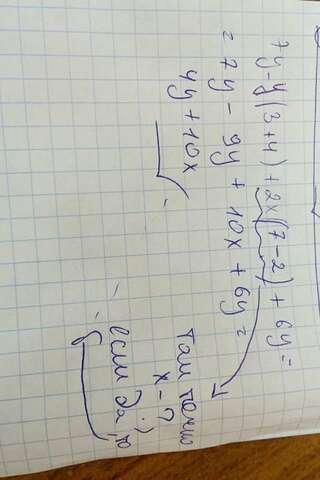 7y - y(3+4) + 2x(7-2) + 6y =
= 7y - 9y + 10x + 6y =
4y + 10x
там точно
x - ?
если да, то